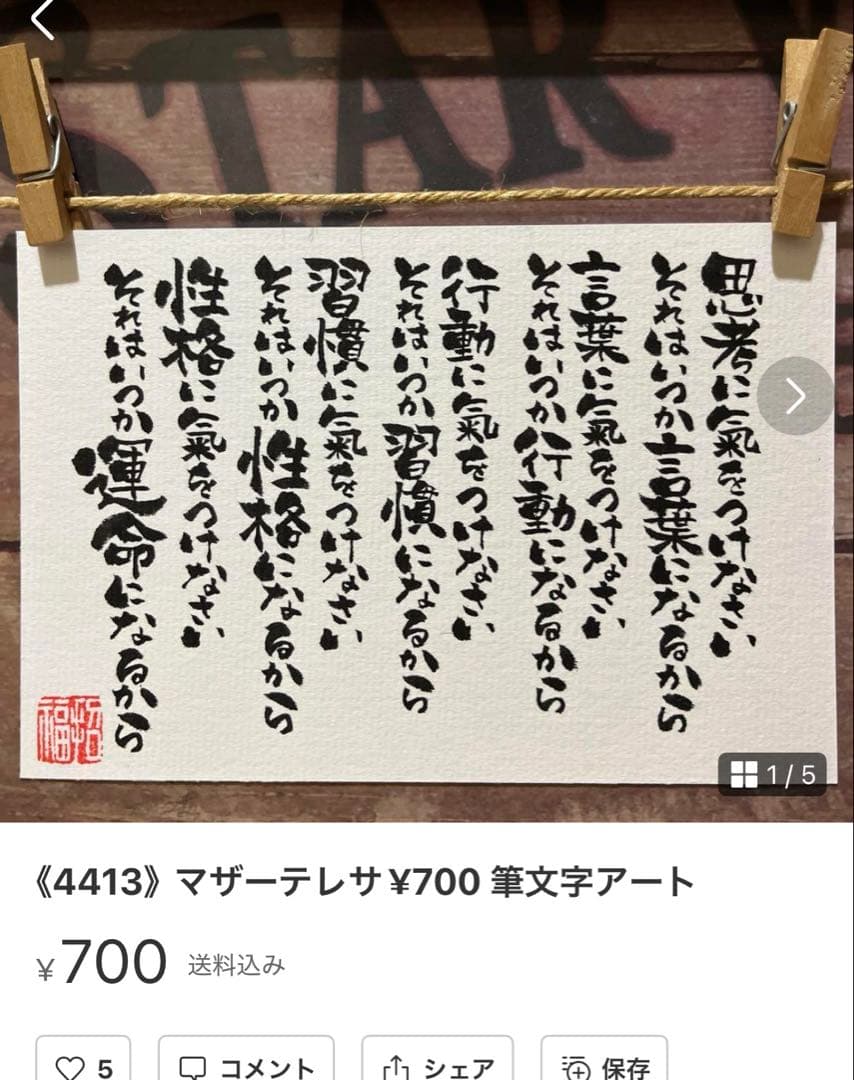 STAR
思考に氣をつけなさい
それはいつか言葉になるから
言葉に氣をつけなさい
それはいつか行動になるから
行動に氣をつけなさい
それはいつか習慣になるから
習慣に氣をつけなさい
それはいつか性格になるから
性格に氣をつけなさい
それはいつか運命になるから
招福
1/5
《4413》マザーテレサ¥700 筆文字アート
¥700 送料込み
5 コメント シェア 保存